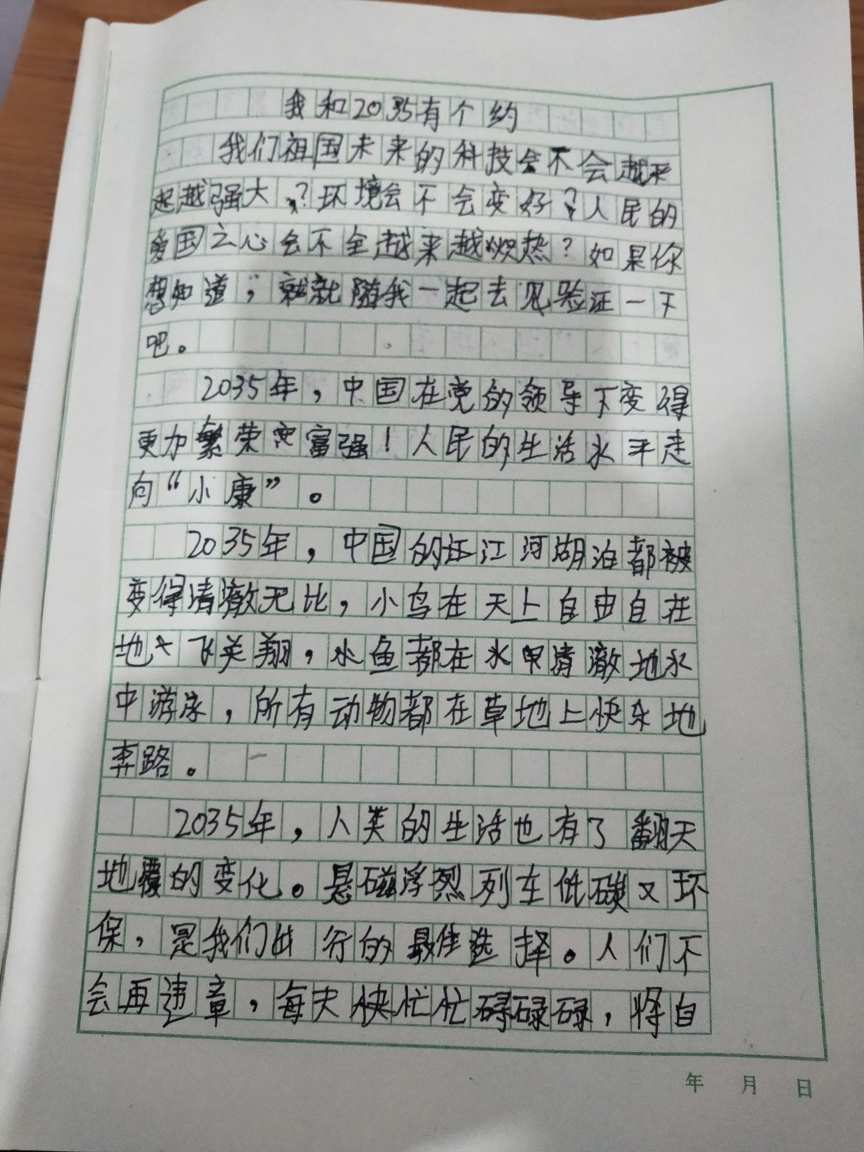 我和2035有个约
我们祖国未来的科技会不会越来
越强大？环境会不会变好？人民的
爱国之心会不会越来越炽热？如果你
想知道，就随我一起去见验证一下
吧。
2035年，中国在党的领导下变得
更加繁荣富强！人民的生活水平走
向“小康”。
2035年，中国的江河湖泊都被
变得清澈无比，小鸟在天上自由自在
地飞翔，水鱼都在水中清澈地水
中游泳，所有动物都在草地上快乐地
奔路。
2035年，人类的生活也有了翻天
地覆的变化。悬磁浮列车低碳又环
保，是我们出行的最佳选择。人们不
会再违章，每天快忙忙碌碌，将自
年 月 日